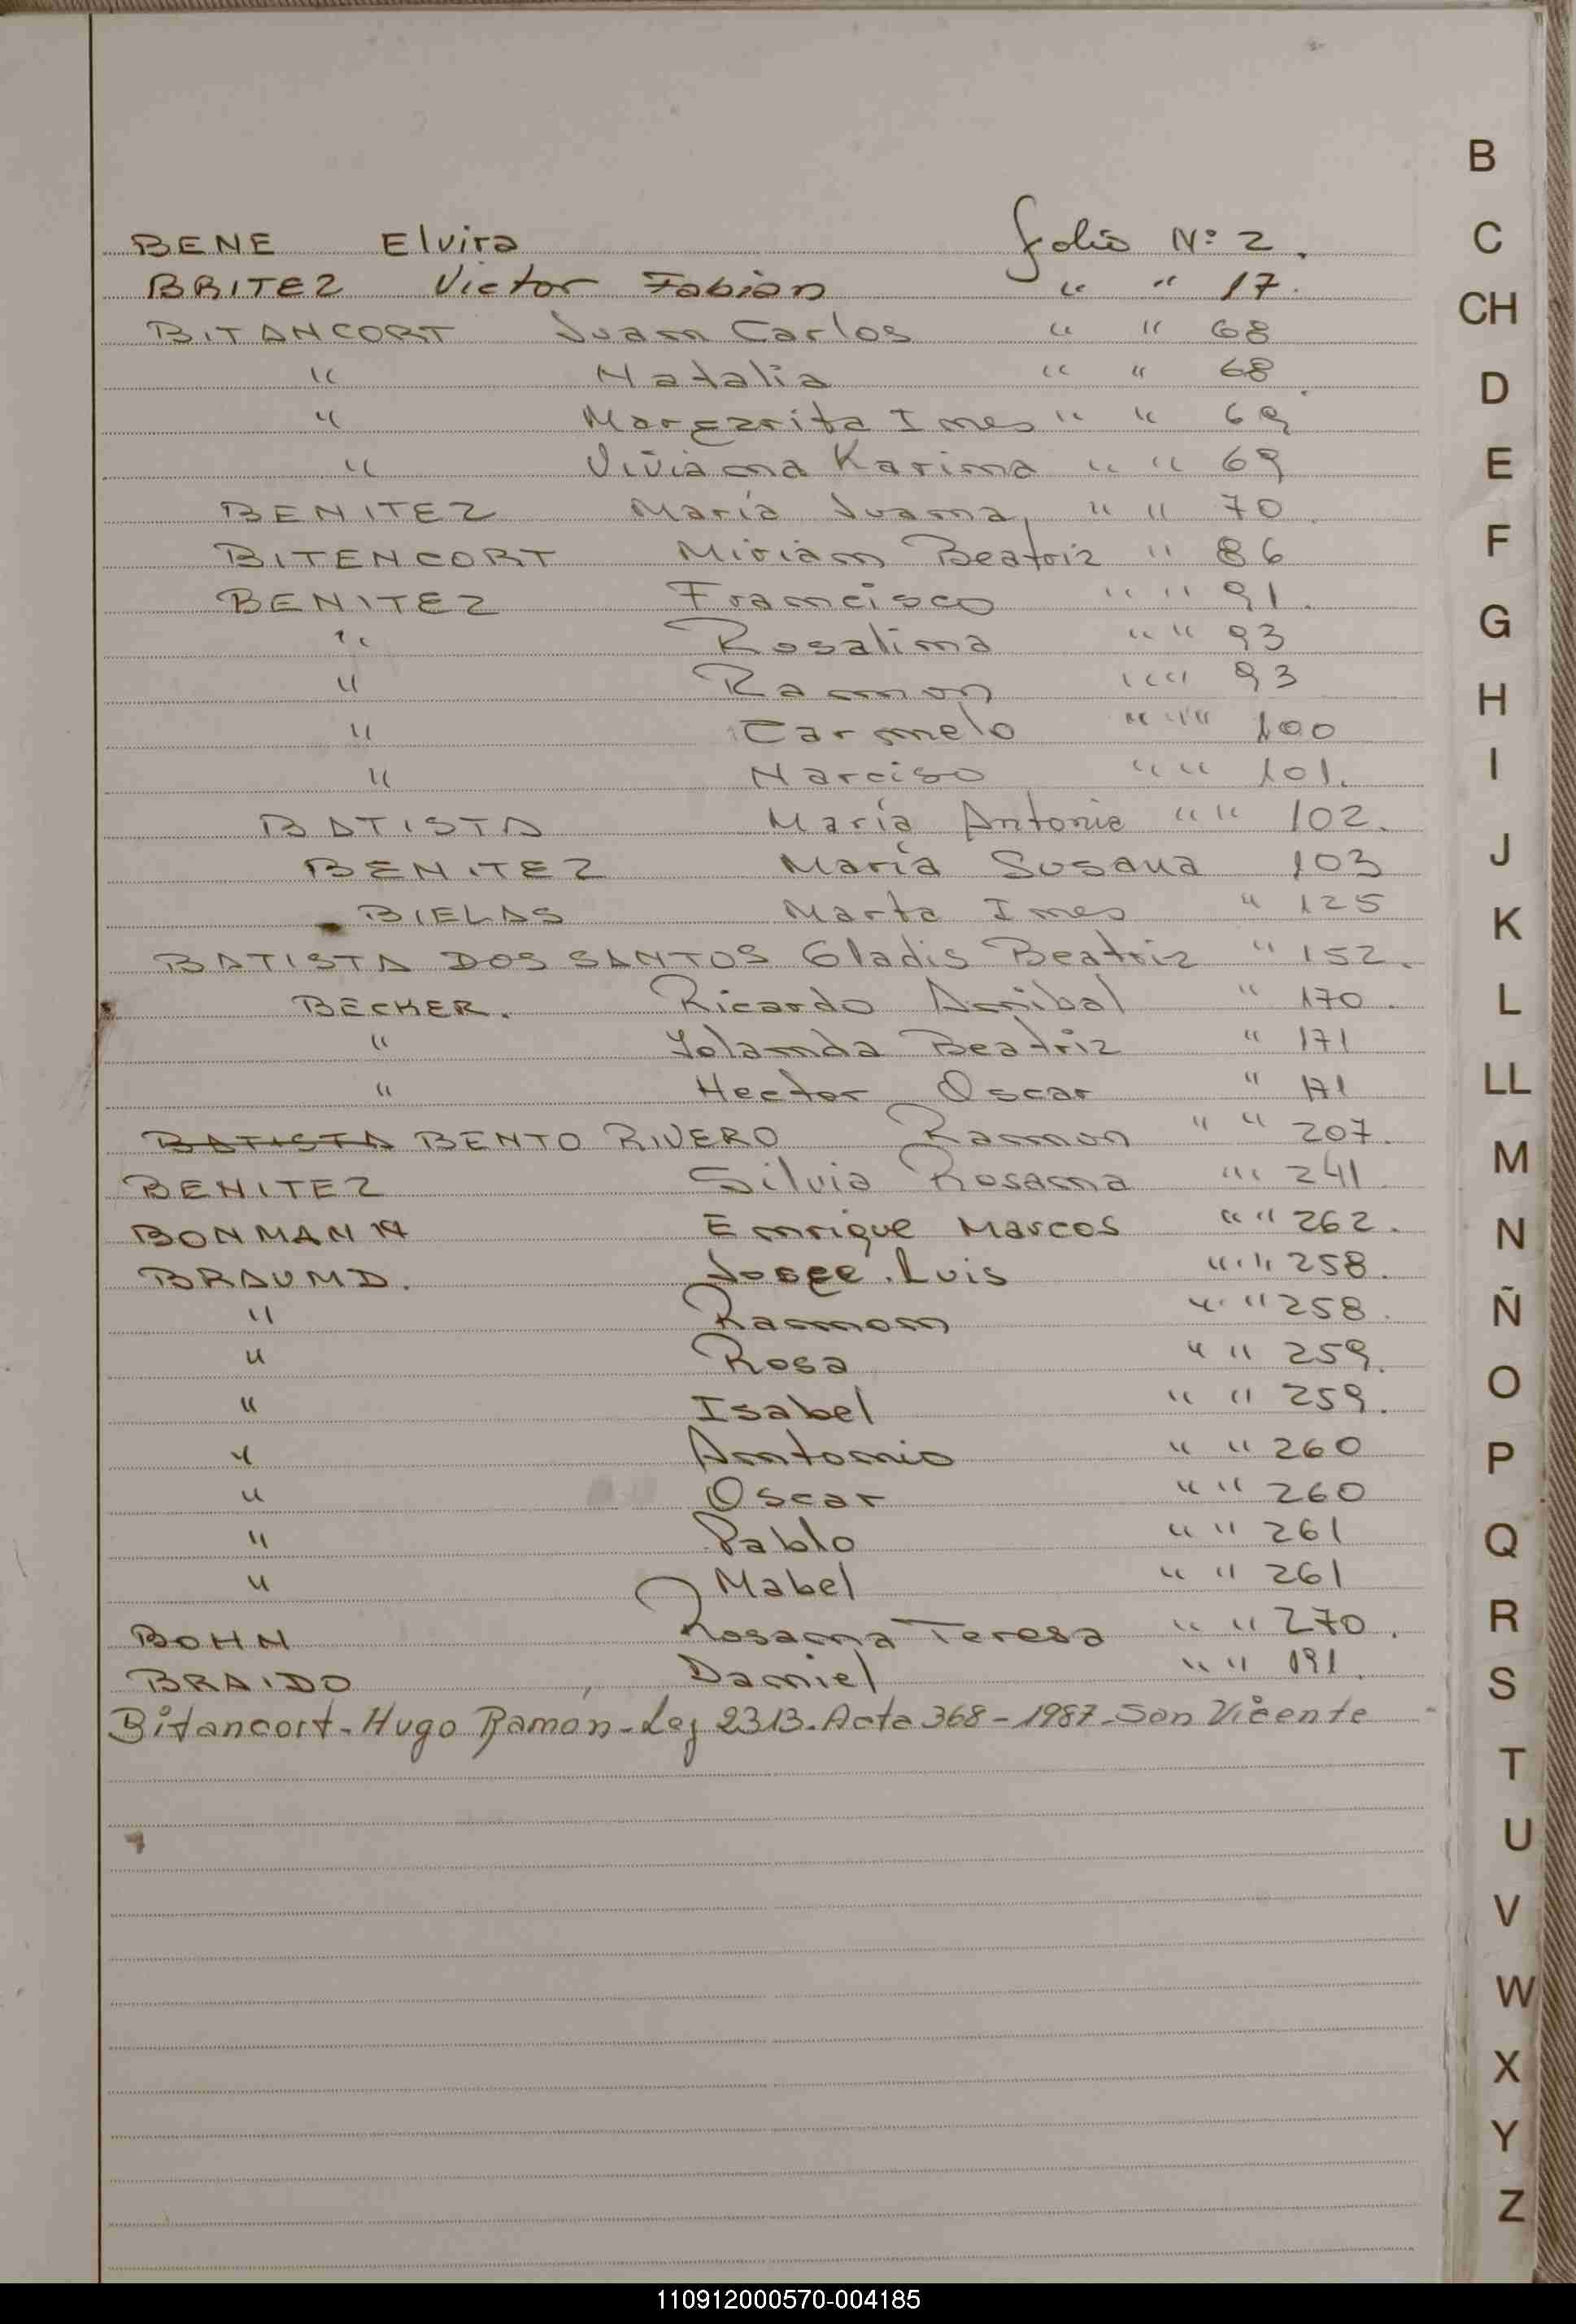 BENE Elvira folio Nº 2.
BRITEZ Victor Fabian " " 17.
BITANCORT Juan Carlos " " 68
" Natalia " " 68
" Margarita Ines " " 69
" Viviana Karina " " 69
BENITEZ María Juana " " 70
BITENCORT Miriam Beatriz " 86
BENITEZ Francisco " " 91.
" Rosalina " " 93
" Ramon " " 93
" Carmelo " " 100
" Narciso " " 101.
BATISTA María Antonia " " 102.
BENITEZ María Susana 103
BIELAS Marta Ines " 125
BATISTA DOS SANTOS Gladis Beatriz " 152.
BECKER. Ricardo Anibal " 170.
" Yolanda Beatriz " 171
" Hector Oscar " 171
BATISTA BENTO RIVERO Ramon " " 207.
BENITEZ Silvia Rosana " " 241.
BONMANN Enrique Marcos " " 262.
BRAUND. Jose Luis " " 258.
" Ramon " " 258.
" Rosa " " 259.
" Isabel " " 259.
" Antonio " " 260
" Oscar " " 260
" Pablo " " 261
" Mabel " " 261
BOHN Rosana Teresa " " 270.
BRAIDO Daniel " " 191.
Bitancort-Hugo Ramon-Leg 2313. Acta 368-1987-San Vicente-
B
C
CH
D
E
F
G
H
I
J
K
L
LL
M
N
Ñ
O
P
Q
R
S
T
U
V
W
X
Y
Z
110912000570-004185